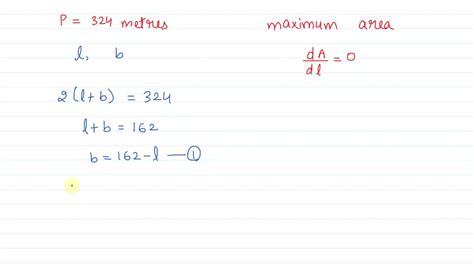 P = 324 metres
maximum area
l, b
dA/dl = 0
2(l+b) = 324
l+b = 162
b = 162-l —①